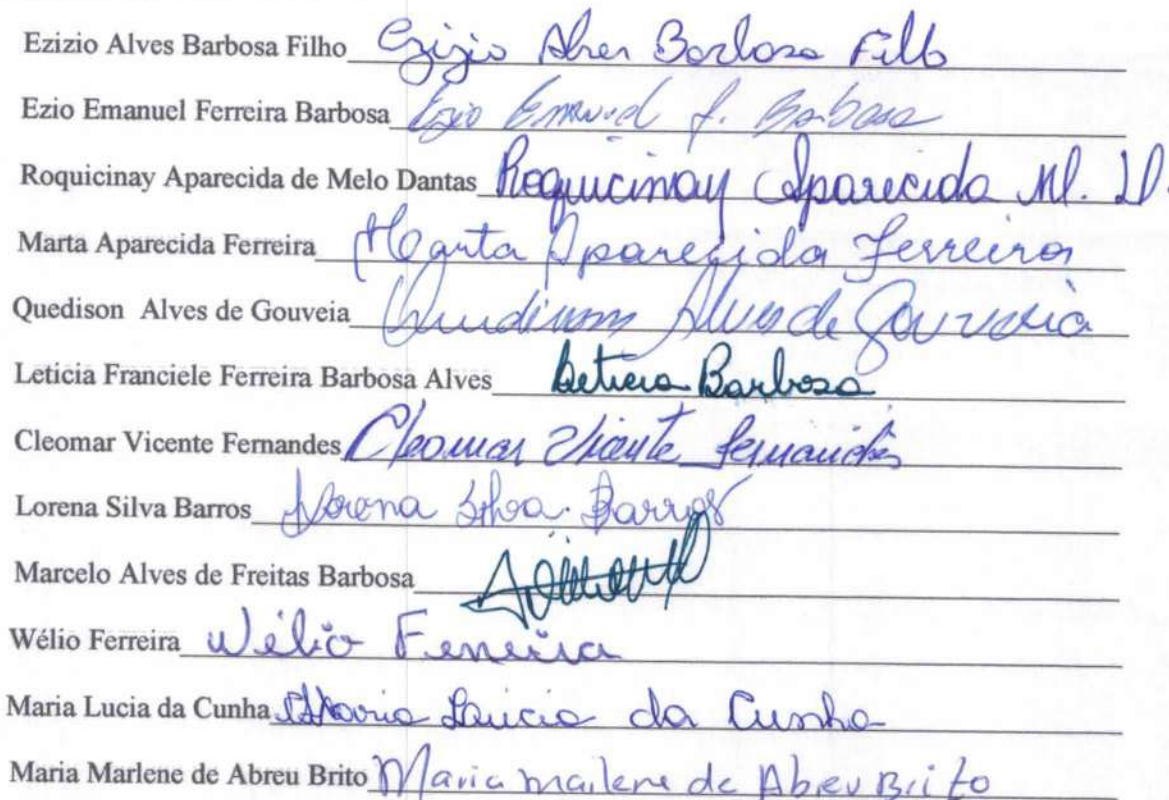 Ezizio Alves Barbosa Filho Ezizio Alves Barbosa Filho
Ezio Emanuel Ferreira Barbosa Ezio Emanuel f. Barbosa
Roquicinay Aparecida de Melo Dantas Roquicinay Aparecida M. D.
Marta Aparecida Ferreira Marta Aparecida Ferreira
Quedison Alves de Gouveia Alves de Gouveia
Leticia Franciele Ferreira Barbosa Alves Leticia Barbosa
Cleomar Vicente Fernandes Cleomar Vicente Fernandes
Lorena Silva Barros Lorena Silva Barros
Marcelo Alves de Freitas Barbosa
Wélio Ferreira Wélio Ferreira
Maria Lucia da Cunha Maria Lucia da Cunha
Maria Marlene de Abreu Brito Maria marlene de Abreu Brito